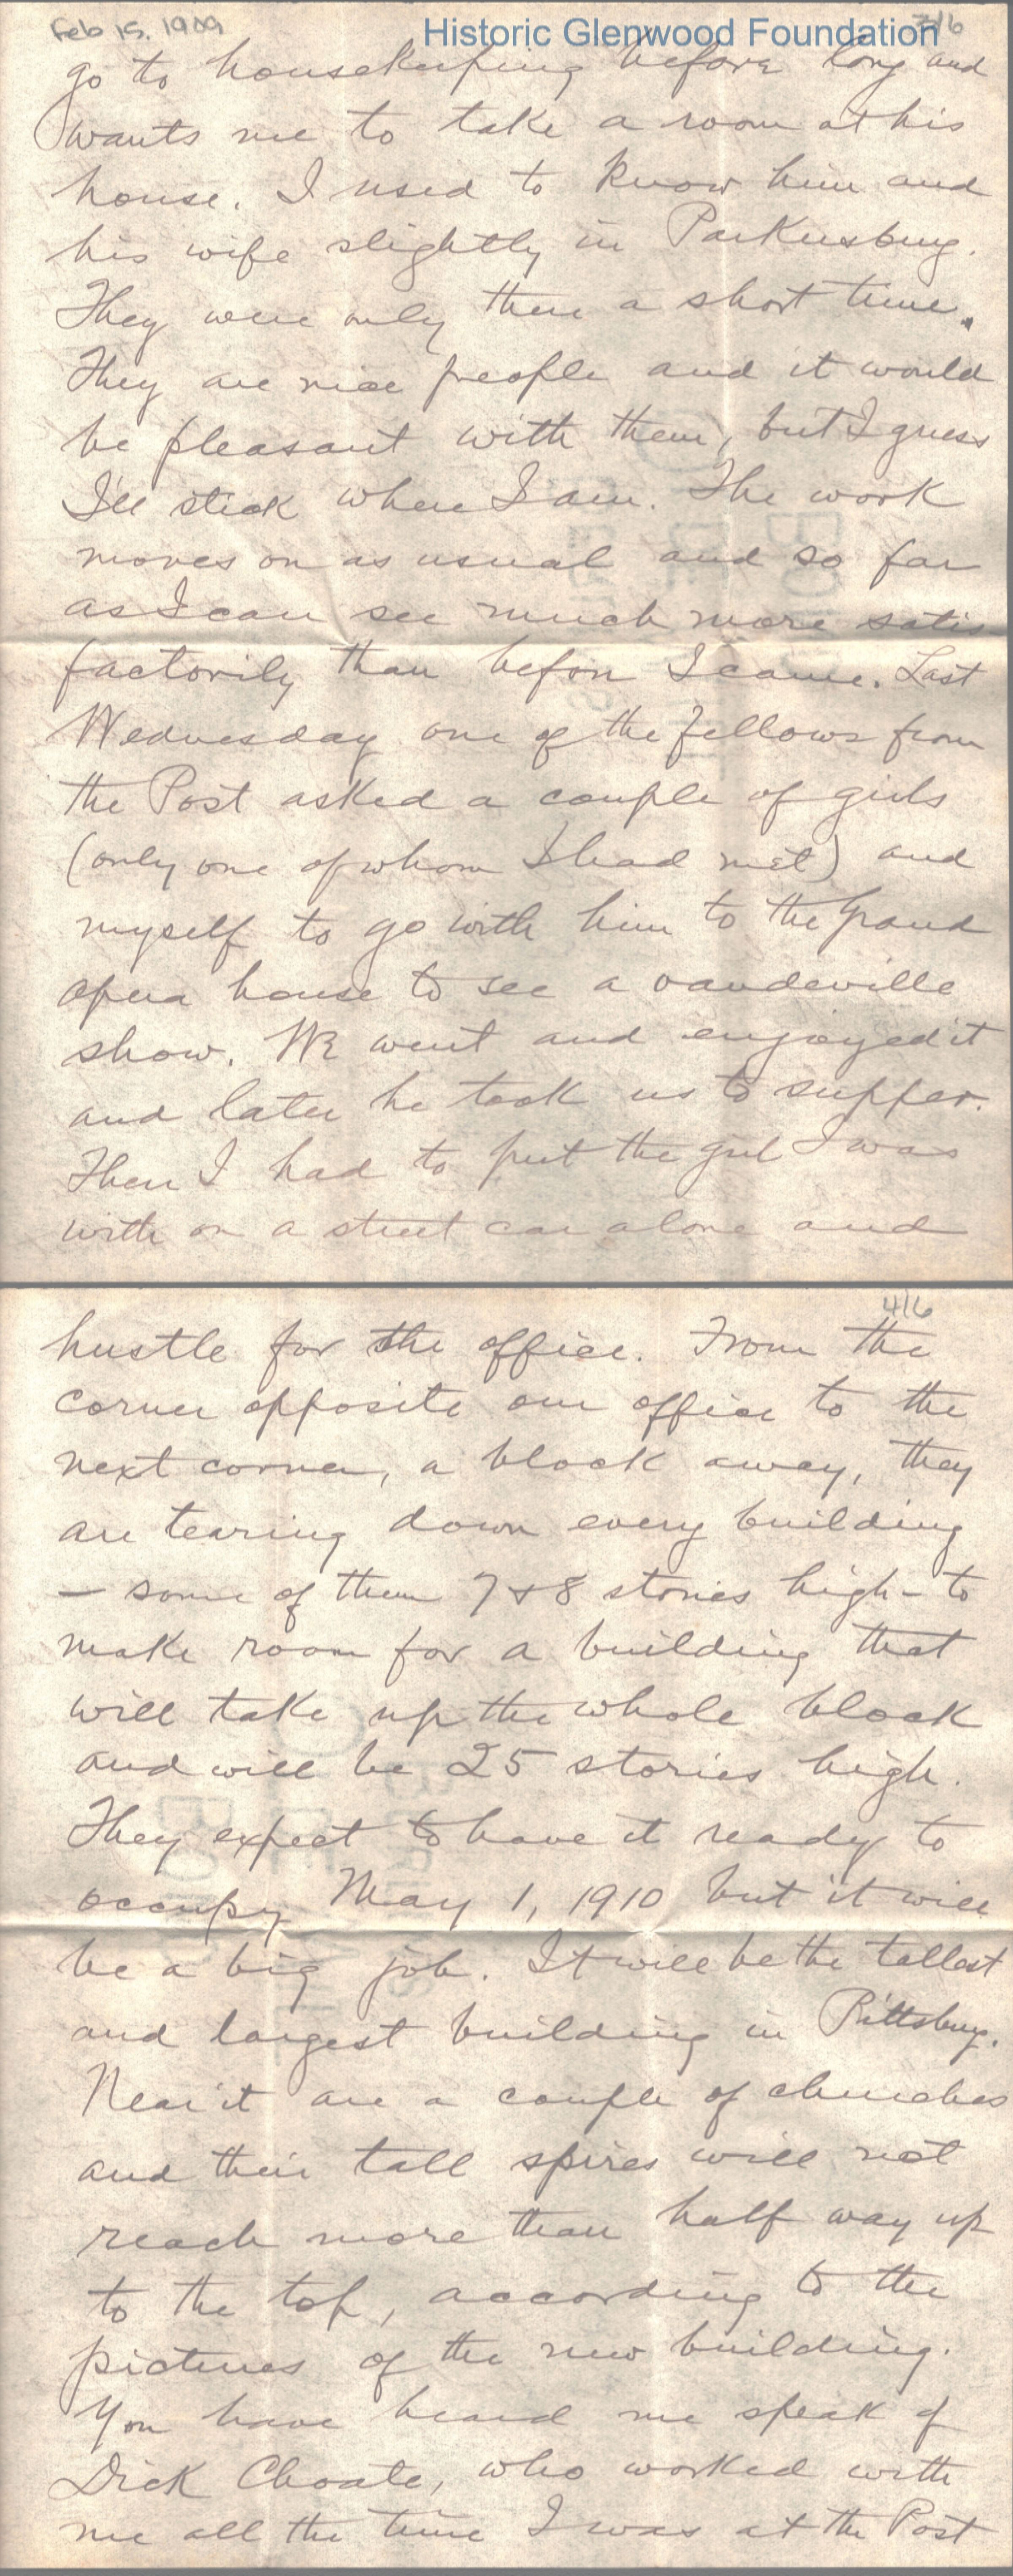 Feb 15, 1909
Historic Glenwood Foundation
3/6
go to housekeeping before long and
wants me to take a room at his
house. I used to know him and
his wife slightly in Parkersburg.
They were only there a short time.
They are nice people and it would
be pleasant with them, but I guess
I'll stick where I am. The work
moves on as usual and so far
as I can see much more satis
factorily than before I came. Last
Wednesday one of the fellows from
the Post asked a couple of girls
(only one of whom I had met) and
myself to go with him to the Grand
opera house to see a vaudeville
show. We went and enjoyed it
and later he took us to supper.
Then I had to put the girl I was
with on a street car alone and
4/6
hustle for the office. From the
corner opposite our office to the
next corner, a block away, they
are tearing down every building
– some of them 7 & 8 stories high – to
make room for a building that
will take up the whole block
and will be 25 stories high.
They expect to have it ready to
occupy May 1, 1910 but it will
be a big job. It will be the tallest
and largest building in Pittsburg.
Near it are a couple of churches
and their tall spires will not
reach more than half way up
to the top, according to the
pictures of the new building.
You have heard me speak of
Dick Choate, who worked with
me all the time I was at the Post